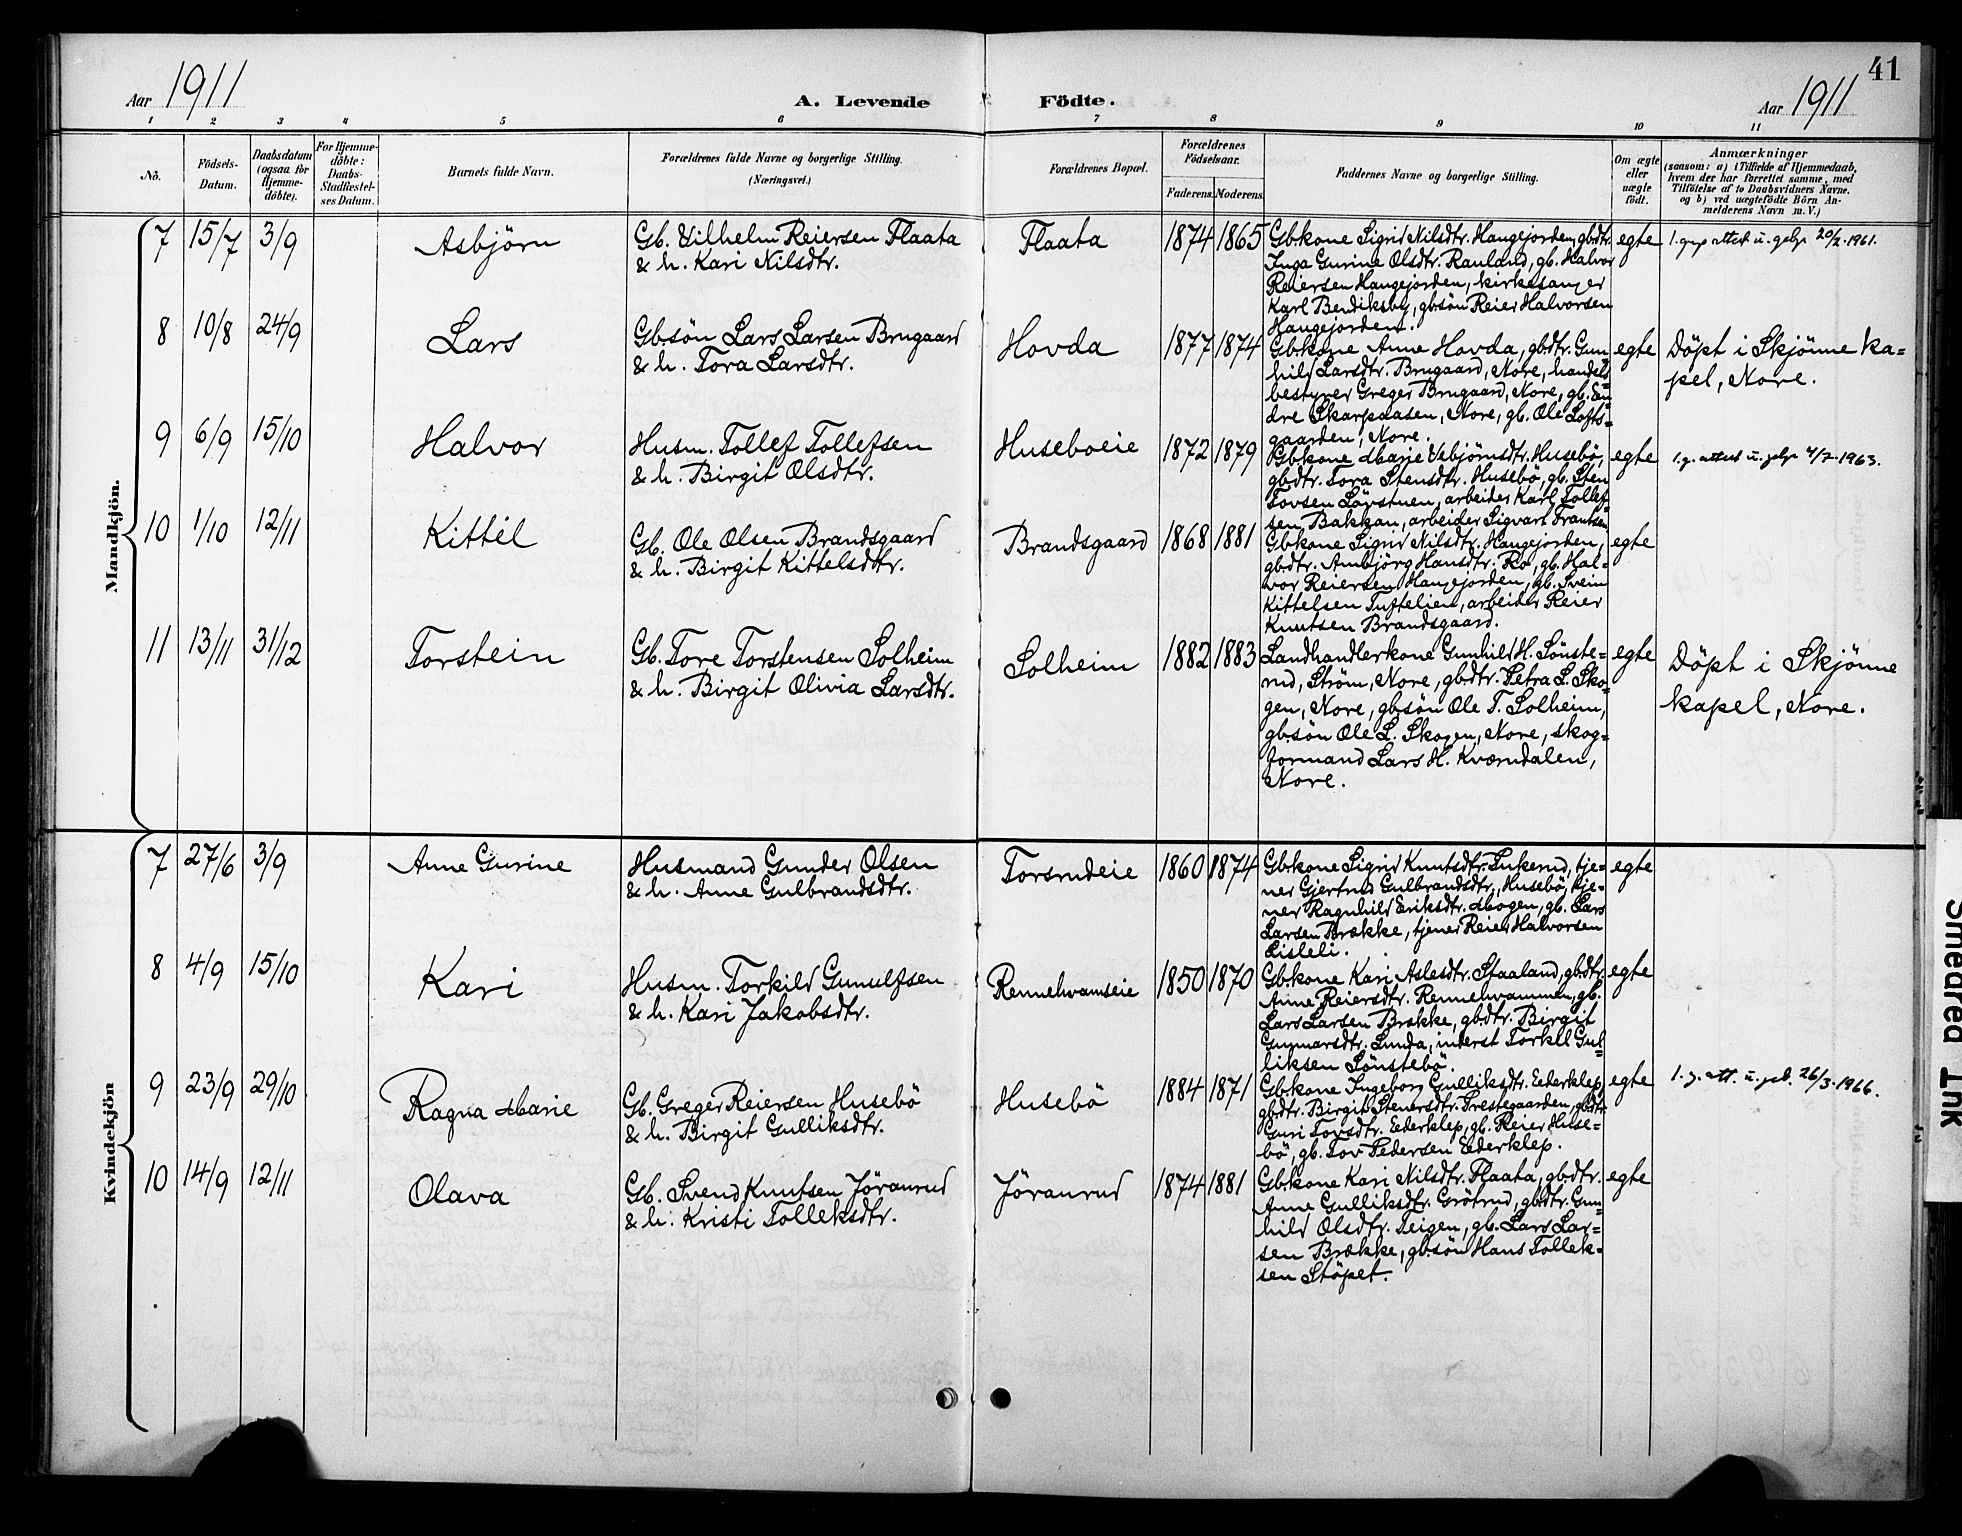 41
Aar 1911
A. Levende Födte.
Aar 1911
1 2 3 4 5 6 7 8 9 10 11
No.
Födsels-
Datum.
Daabsdatum
(ogsaa for
Hjemme-
döbte).
For Hjemme-
döbte:
Daabs-
Stadfæstel-
ses Datum.
Barnets fulde Navn.
Forældrenes fulde Navne og borgerlige Stilling.
(Næringsvei.)
Forældrenes Bopæl.
Forældrenes
Födselsaar.
Faderens. Moderens.
Faddernes Navne og borgerlige Stilling.
Om ægte
eller
uægte
födt.
Anmærkninger
(saasom: a) i Tilfælde af Hjemmedaab,
hvem der har forrettet samme, med
Tilföielse af to Daabsvidners Navne.
og b) ved uægtefödte Börn An-
melderens Navn m. V.)
Mandkjön.
7 15/7 3/9 Asbjörn
Gb. Vilhelm Reiersen Flaata
& h. Kari Nilsdtr.
Flaata 1874 1865
Gbkone Sigrid Nilsdtr. Haugejorden, gbdtr.
Inga Gurine Olsdtr. Rauland, gb. Halvor
Reiersen Haugejorden, kirkesanger
Karl Bendiksby, gbsön Reier Halvorsen
Haugejorden.
egte
20/2-1961.
8 10/8 24/9 Lars
Gbsön Lars Larsen Brugaard
& h. Tora Larsdtr.
Hovda 1877 1874
Gbkone Anne Hovda, gbdtr. Gun-
hild Larsdtr. Brugaard, Nore, handels-
bestyrer Greger Brugaard, Nore, gb. En-
dre Skarpaasen, Nore, gb. Ole Lofts-
gaarden, Nore.
egte
Döpt i Skjönne ka-
pel, Nore.
9 6/9 15/10 Halvor
Husm. Tollef Tollefsen
& h. Birgit Olsdtr.
Huseboeie 1872 1879
Gbkone Marie Vebjörnsdtr. Husebö,
gbdtr. Tora Stensdtr. Husebö, gb. Sten
Tovsen Lövstuen, arbeider Karl Tollef-
sen Bakkan, arbeider Sigvart Frantsen
egte
4/2-1963.
10 1/10 12/11 Kittil
Gb. Ole Olsen Brandsgaard
& h. Birgit Kittelsdtr.
Brandsgaard 1868 1881
Gbkone Sigrid Nilsdtr. Haugejorden,
gbdtr. Ambjörg Hansdtr. Ro, gb. Hal-
vor Reiersen Haugejorden, gb. Svein
Kittelsen Tuftelien, arbeider Reier
Knutsen Brandsgaard.
egte
11 13/11 31/12 Torstein
Gb. Tore Torstensen Solheim
& h. Birgit Olivia Larsdtr.
Solheim 1882 1883
Landhandlerkone Gunhild H. Sönste-
rud, Ström, Nore, gbdtr. Petra L. Sko-
gen, Nore, gbsön Ole T. Solheim,
gbsön Ole L. Skogen, Nore, skog-
formand Lars H. Kværndalen,
Nore.
egte
Döpt i Skjönne
kapel, Nore.
Kvindekjön
7 27/6 3/9 Anne Gurine
Husmand Gunder Olsen
& h. Anne Gulbrandsdtr.
Torsrudeie 1860 1874
Gbkone Sigrid Knutsdtr. Lukerud, tje-
ner Gjertrud Gulbrandsdtr. Husebö, tje-
ner Ragnhild Eriksdtr. Mogen, gb. Lars
Larsen Brække, tjener Reier Halvorsen
Lisleli.
egte
8 4/9 15/10 Kari
Husm. Torkild Gunulfsen
& h. Kari Jakobsdtr.
Rennehvamseie 1850 1870
Gbkone Kari Aslesdtr. Staaland, gbdtr.
Anne Reiersdtr. Rennehvammen, gb.
Lars Larsen Brække, gbdtr. Birgit
Gunnarsdtr. Lunda, inderst Torkel Gul-
liksen Sönstebö.
egte
9 23/9 29/10 Ragna Marie
Gb. Greger Reiersen Husebö
& h. Birgit Gulliksdtr.
Husebö 1884 1871
Gbkone Ingeborg Gulliksdtr. Eederklep,
gbdtr. Birgit Stenersdtr. Prestegaarden, gbdtr.
Guri Tovsdtr. Eederklep, gb. Reier Huse-
bö, gb. Tov Pedersen Eederklep.
egte
26/3-1966.
10 14/9 12/11 Olava
Gb. Svend Knutsen Jöranrud
& h. Kristi Tolleksdtr.
Jöranrud 1874 1881
Gbkone Kari Nilsdtr. Flaata, gbdtr.
Anne Gulliksdtr. Grötrud, gbdtr. Gun-
hild Olsdtr. Teigen, gb. Lars Lar-
sen Brække, gbsön Hans Tollek-
sen Stöpet.
egte
Smeared Ink